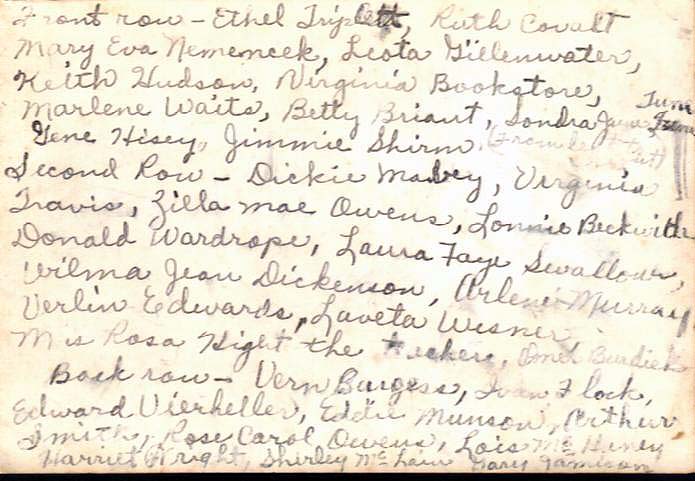 Front row - Ethel Triplett, Ruth Covalt
Mary Eva Nemencek, Leota Gillenwater,
Keith Hudson, Virginia Bookstore,
Marlene Waits, Betty Briant, Sondra June
Gene Hisey, Jimmie Shirm
Second Row - Dickie Mabey, Virginia
Travis, Zilla Mae Owens, Lonnie Beckwith
Donald Wardrope, Laura Faye Swallow,
Wilma Jean Dickenson, Arlene Murray
Verlin Edwards, Laveta Wesner
Mis Rosa Hight the teacher, Burdick
Back row - Vern Burgess, Ivan Flock,
Edward Vierheller, Eddie Munson, Arthur
Smith, Rose Carol Owens, Lois McHeney
Harriet Wright, Shirley McLain Gary Jamison